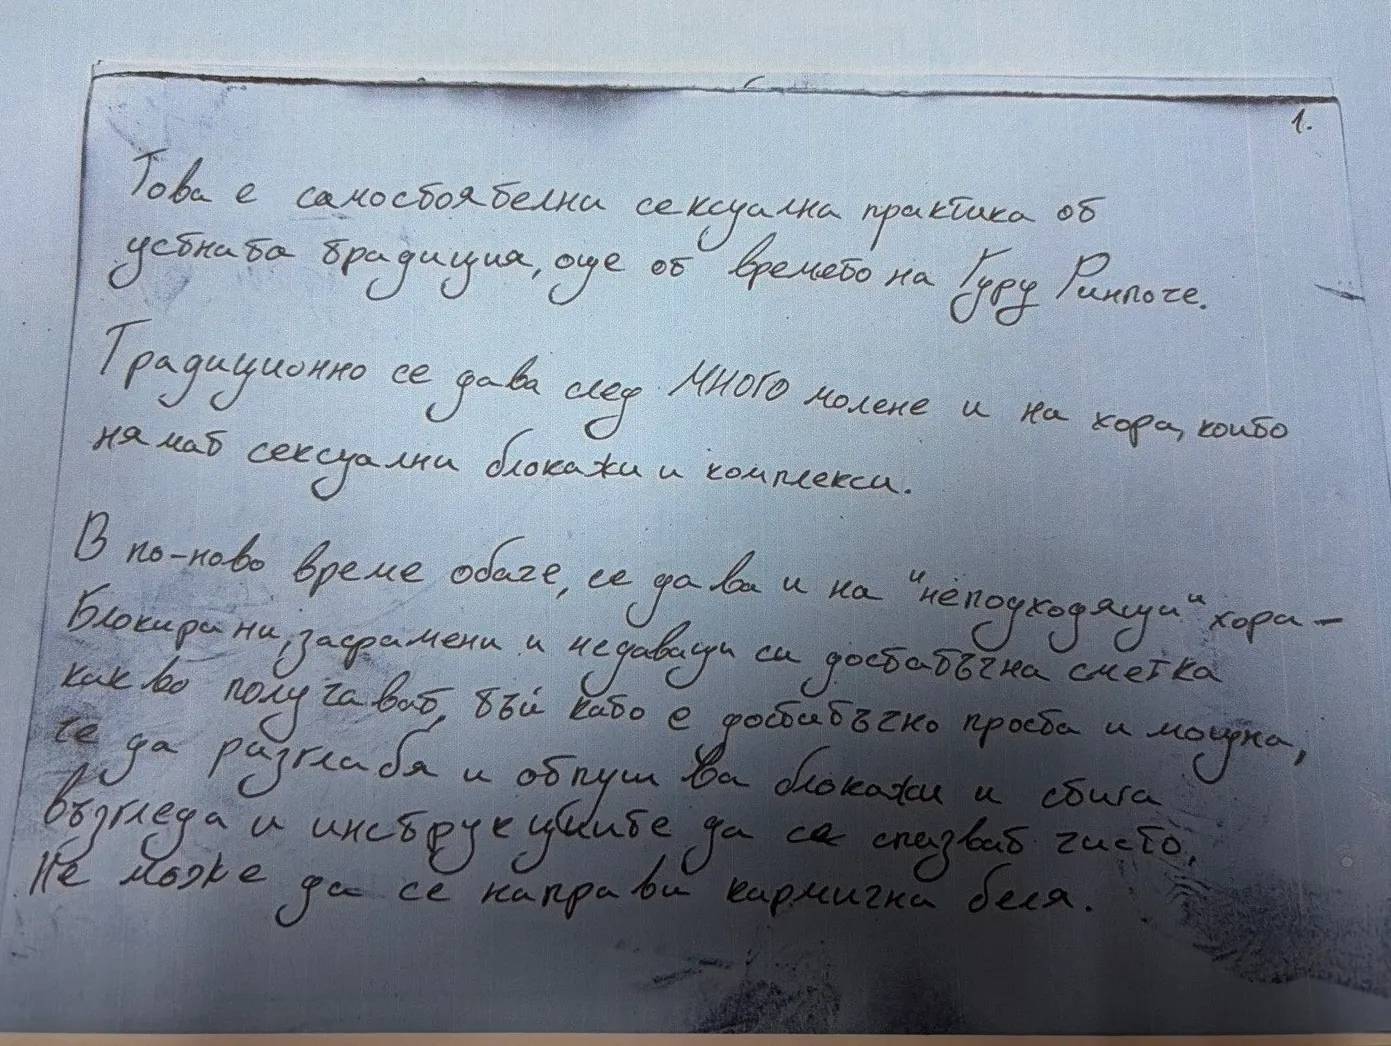 1.
Това е самостоятелни сексуална практика от
устната традиция, още от времето на Гуру Ринпоче.
Традиционно се дава след МНОГО молене и на хора, които
нямат сексуални блокажи и комплекси.
В по-ново време обаче, се дава и на "неподходящи" хора -
блокирани, засрамени и недаващи си достатъчна сметка
какво получават, тъй като е достатъчно проста и мощна,
че да разглабя и отпушва блокажи и стига
възгледа и инструкциите да се спазват чисто,
Не може да се направи кармична беля.